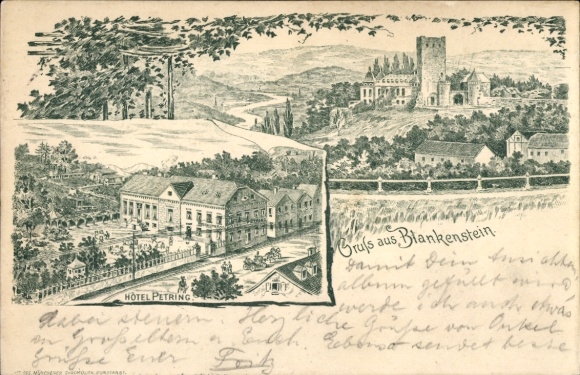 HÔTEL PETRING
Gruß aus Blankenstein
Damit Dein Ansichts
album gefüllt wird
werde ich auch etwas
dabei steuern. Herzliche Grüße von Onkel
Großeltern u. Ebenso sendet beste
Grüße Euer Fritz